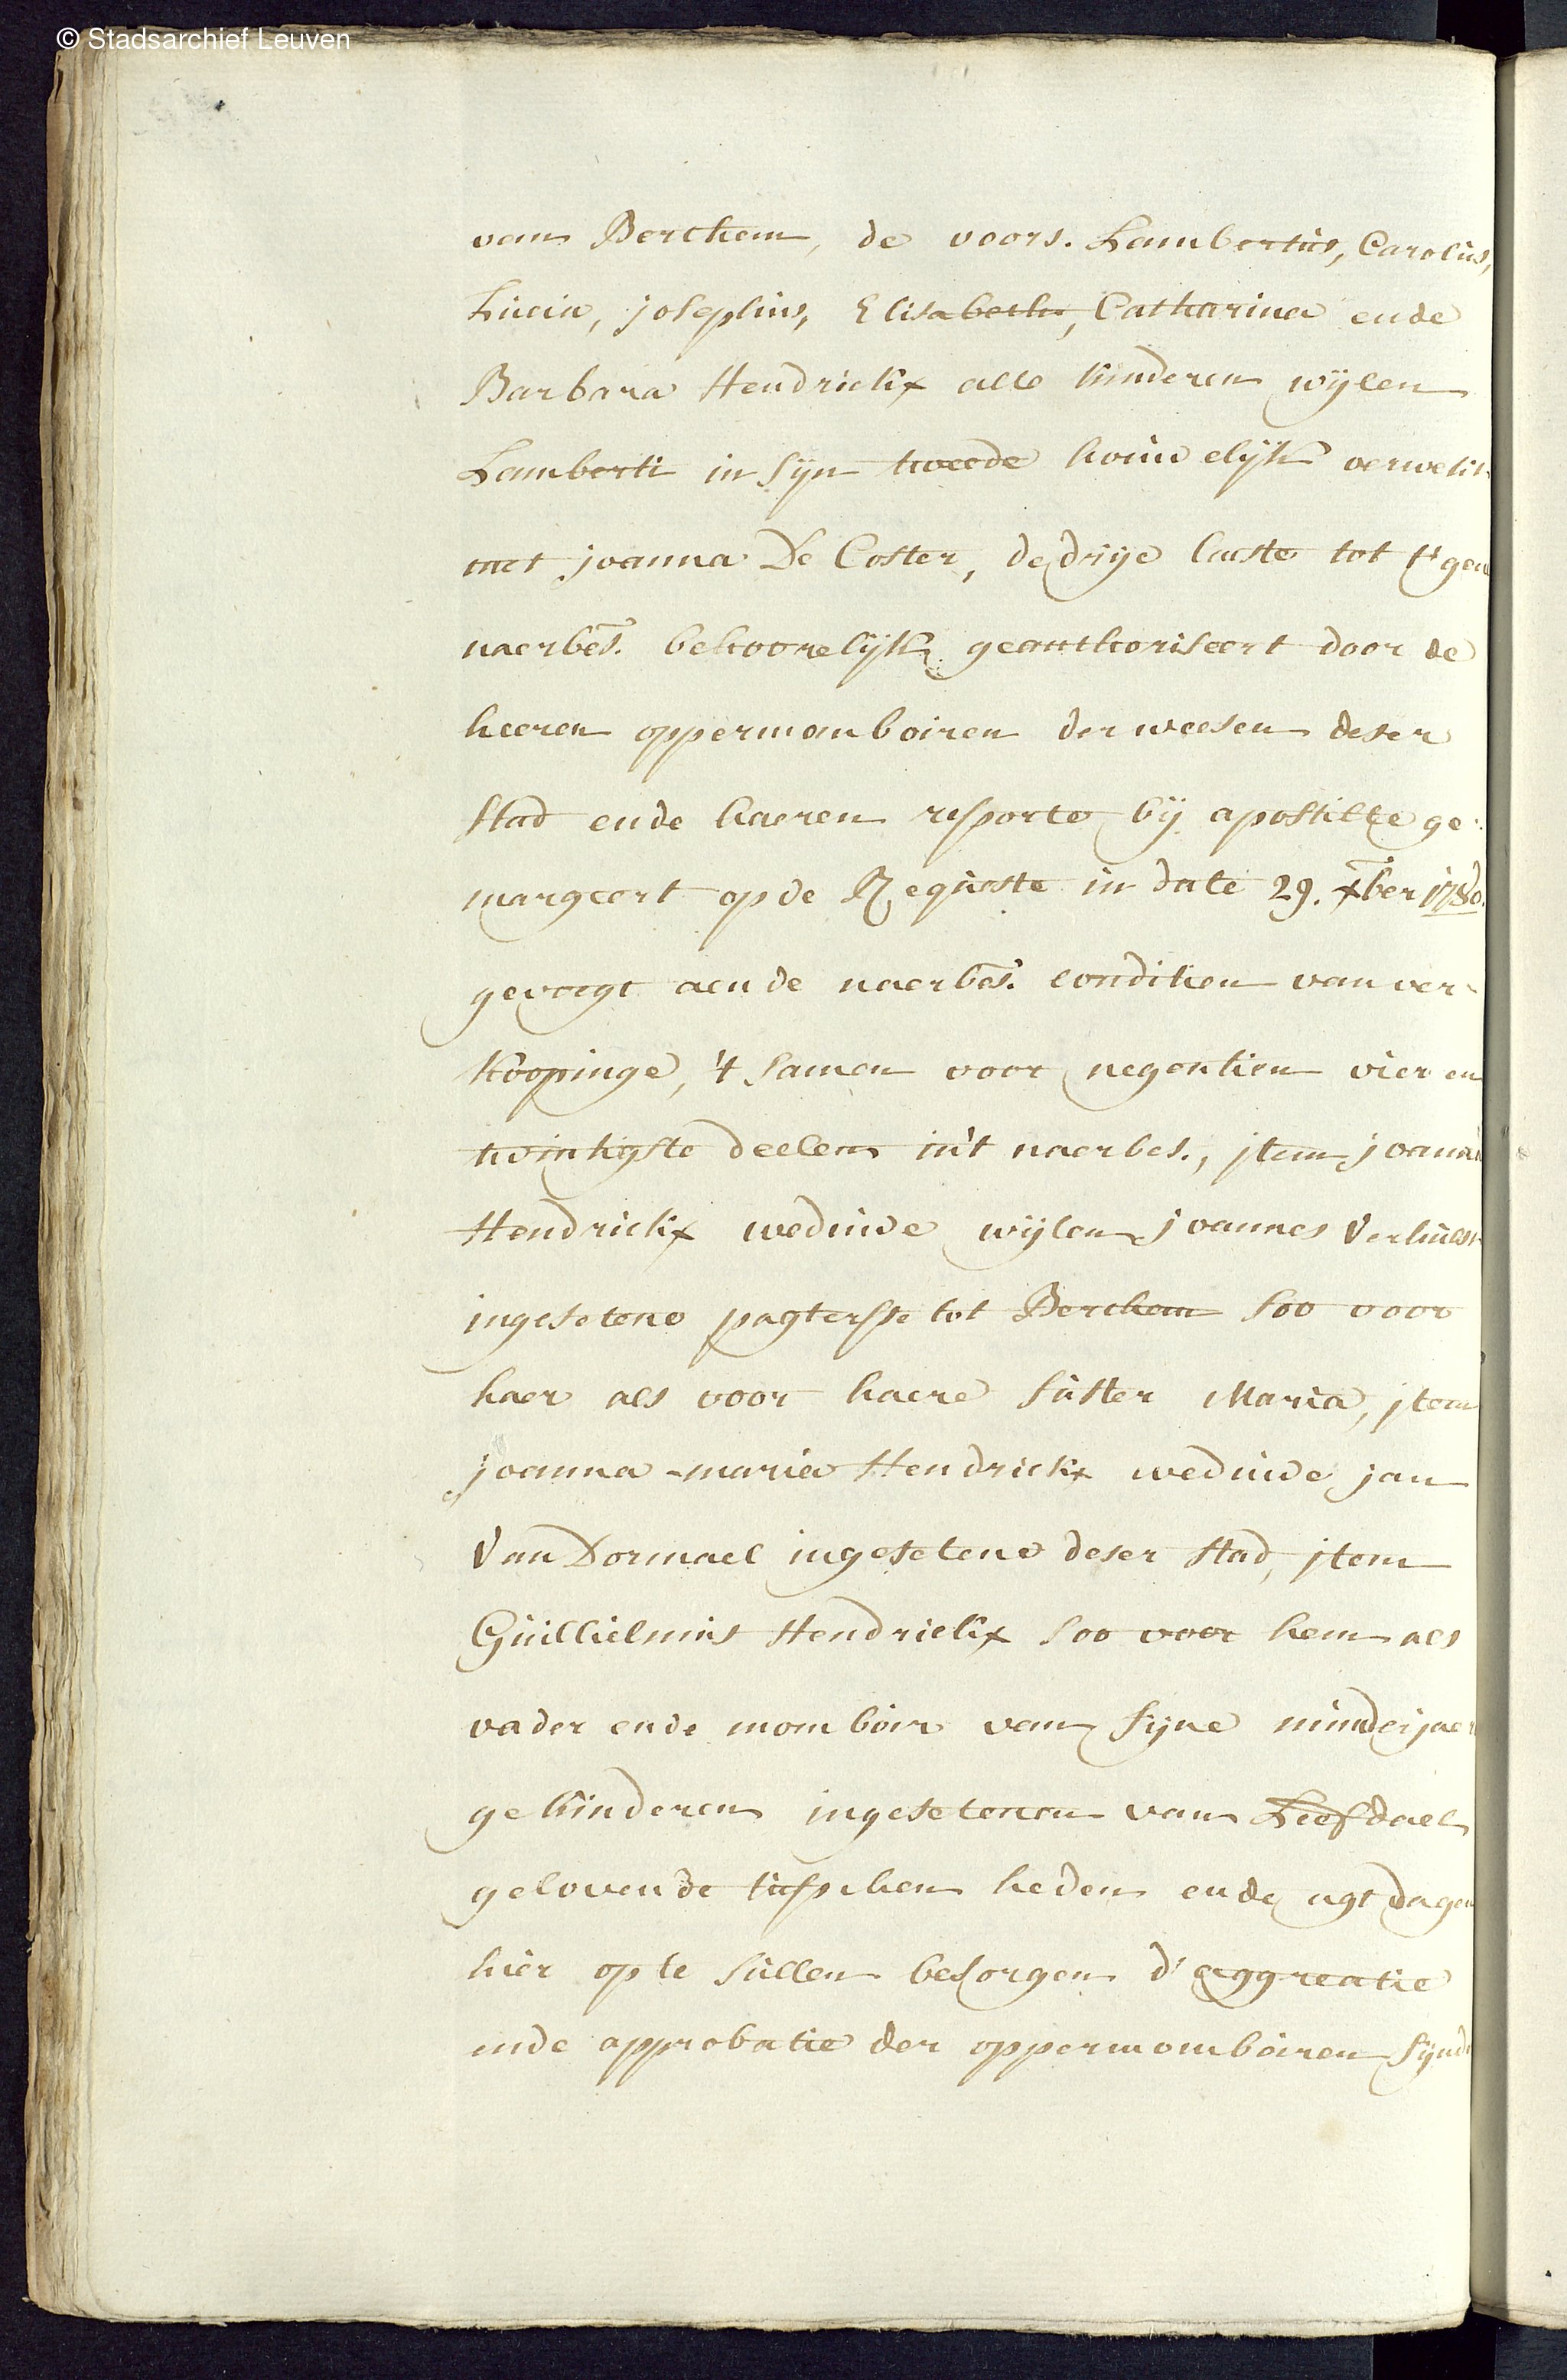 © Stadsarchief Leuven
van Berchem, de voors. Lambertus, Carolus,
Lucia, josephus, Elisabetha, Catharina ende
Barbara Hendrickx alle kinderen wijlen
Lamberti in sijn tweede houwelijk verwekt
met joanna De Coster, de drije leste tot t'gen
naerbes. behoorelijk geauthoriseert door de
heeren oppermomboiren der weesen deser
stad ende haeren resporte bij apostille ge:
margeert op de Requeste in date 29. xber 1780.
gevoegt aen de naerbes. conditien van ver-
koopinge, 't samen voor negentien vier en
twintigste deelen in't naerbes., jtem joanna
Hendrickx weduwe wijlen joannes
ingesetene pagtersse tot Berchem soo voor
haer als voor haere suster Maria, jtem
joanna-maria Hendrickx weduwe jan
Van Dormael ingesetene deser stad, jtem
Guillielmus Hendrickx soo voor hem als
vader ende momboir van sijne minderjaer
ge kinderen ingesetenen van Leefdael
gelovende tusschen heden ende agt dagen
hier op te sullen besorgen d'aggreatie
ende approbatie der oppermomboiren sijnde